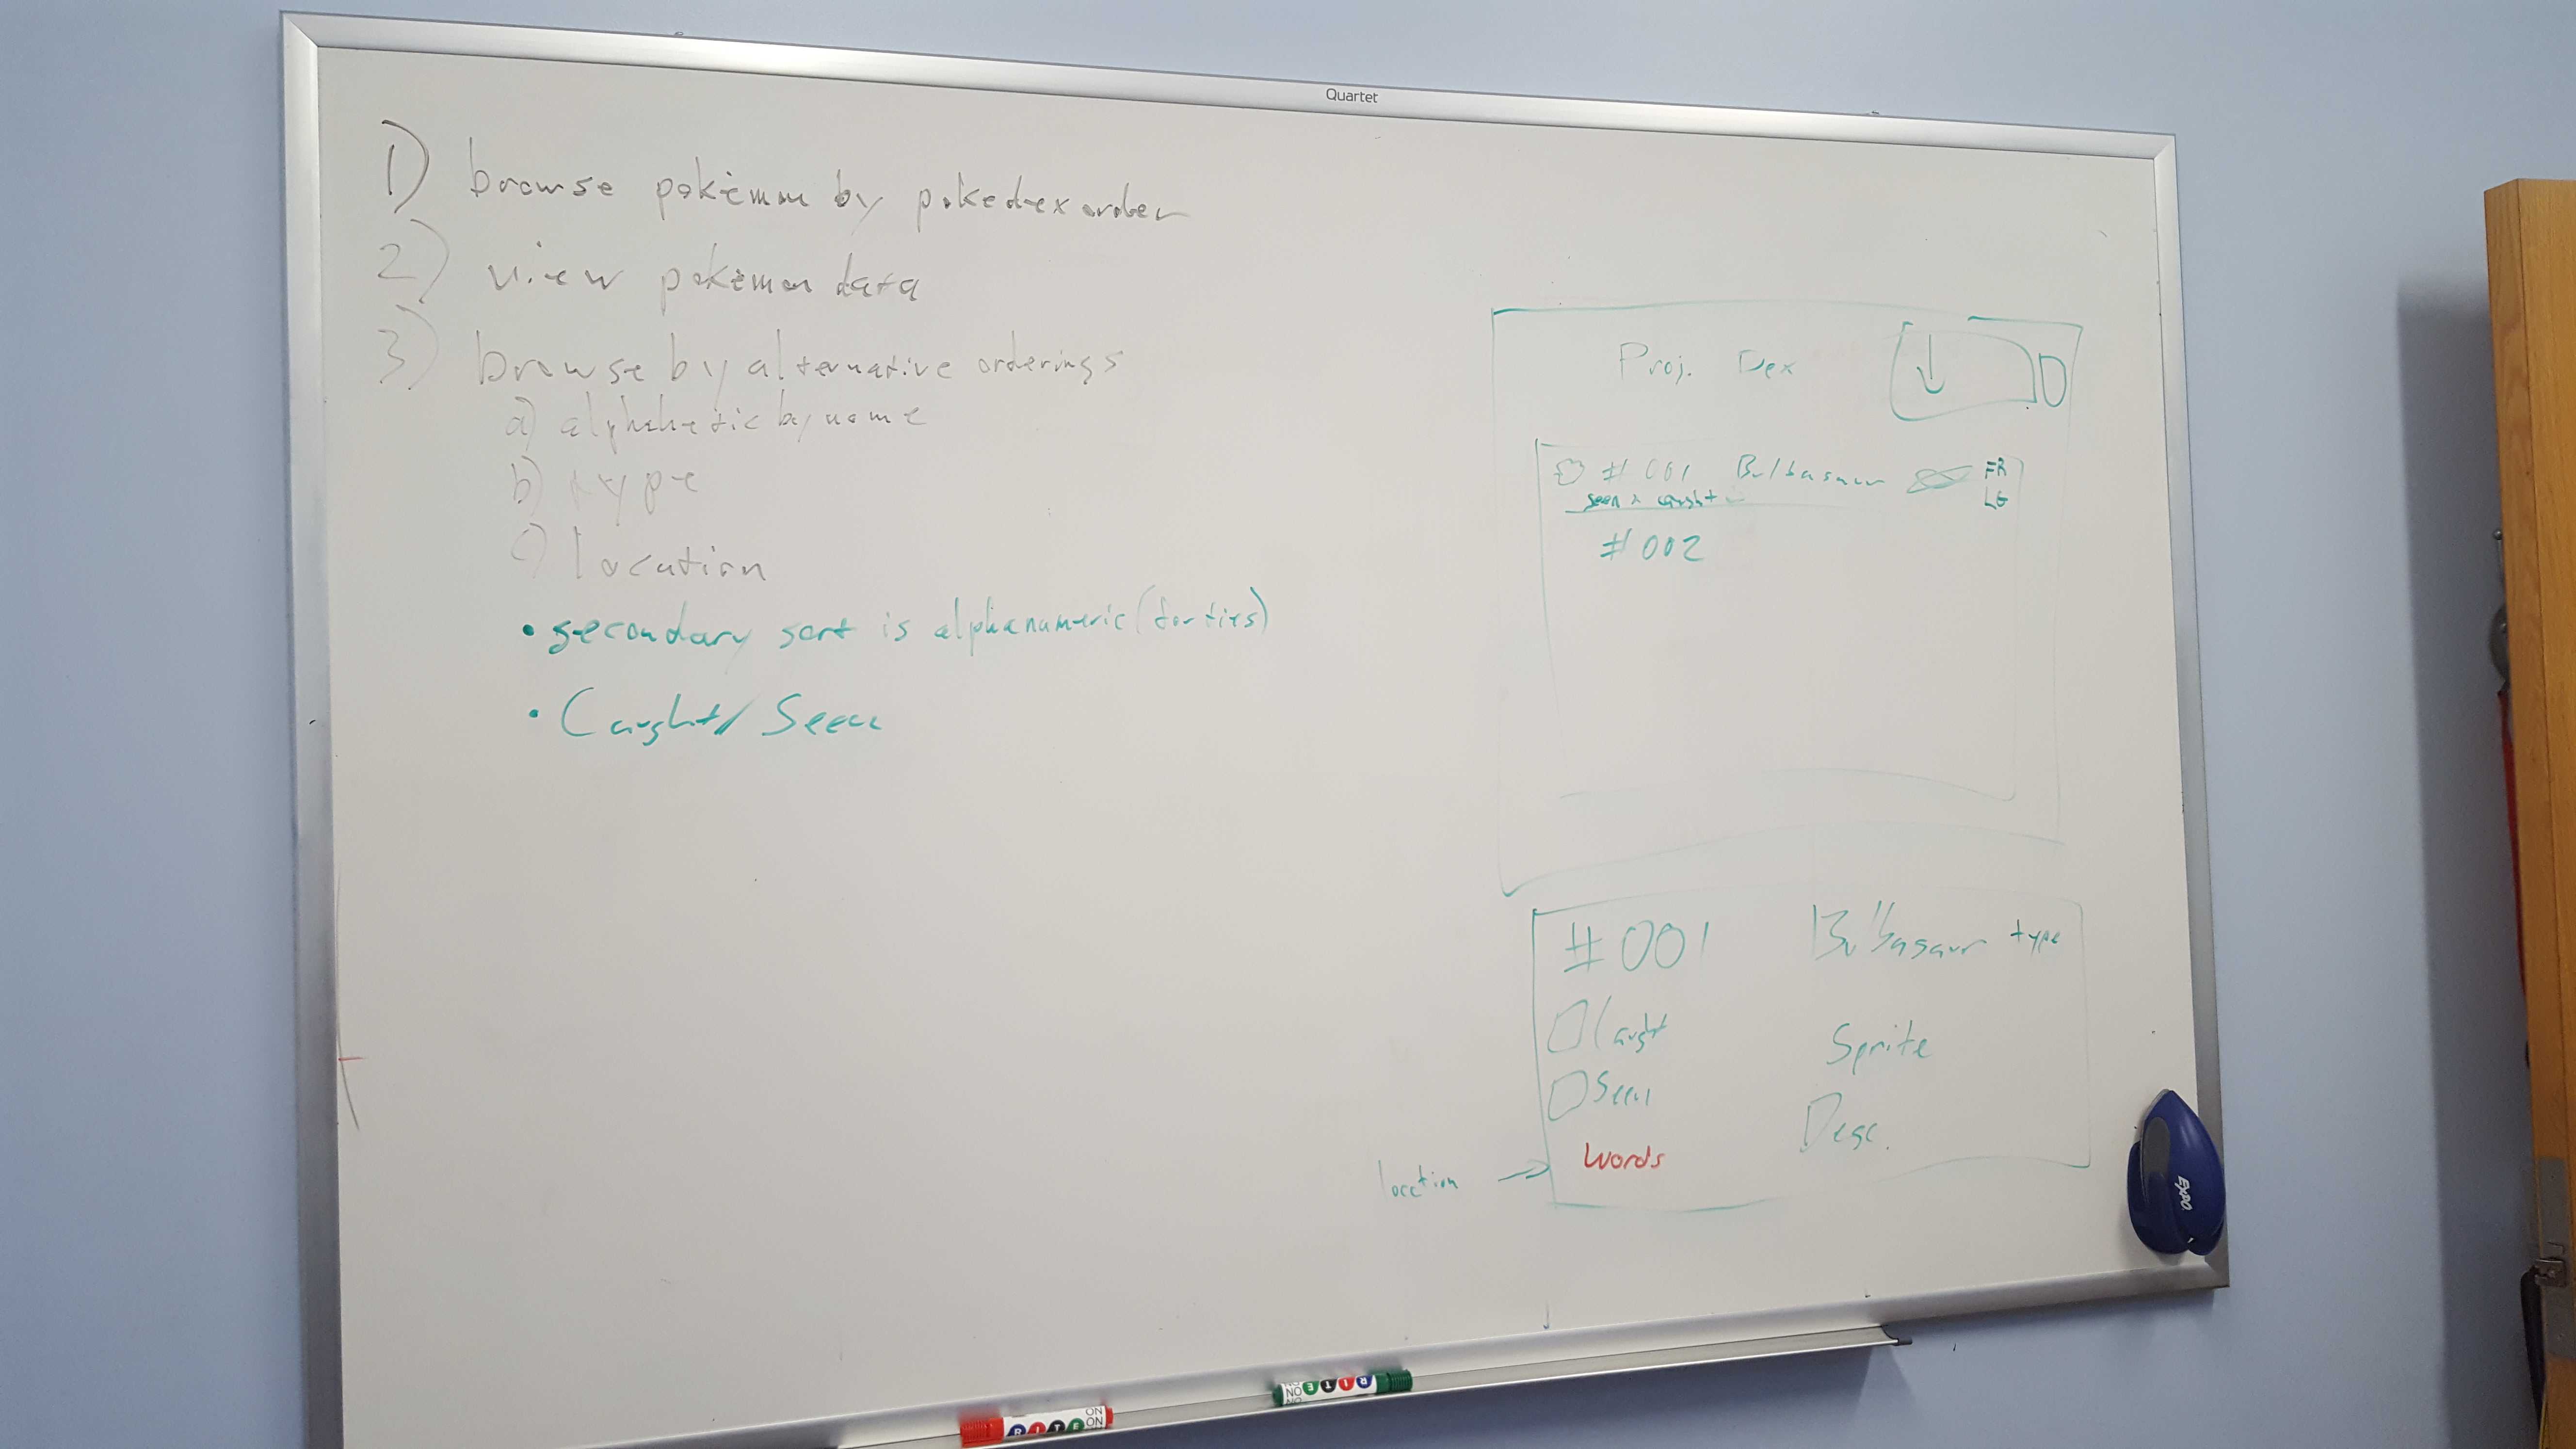 Quartet
1) browse pokémon by pokedex order
2) view pokémon data
3) browse by alternative orderings
a) alphabetic by name
b) type
c) location
• secondary sort is alphanumeric (for ties)
• Caught/ Seen
Proj. Dex
#001 Bulbasaur FR
LG
seen x caught -
#002
#001 Bulbasaur type
Caught
Sprite
Seen
Desc.
Words
location →
EXPO
RITE ON
NO
RITE ON